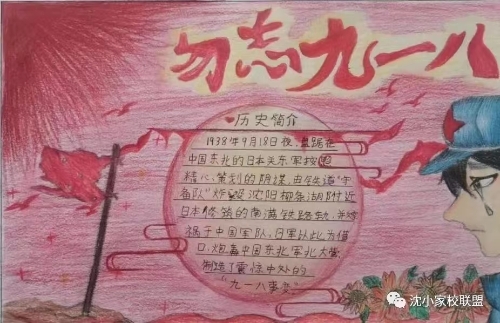 勿忘九一八
历史简介
1938年9月18日夜,盘踞在
中国东北的日本关东军按照
精心策划的阴谋,由铁道"守
备队"炸毁沈阳柳条湖附近
日本修筑的南满铁路轨,并嫁
祸于中国军队,日军以此为借
口,炮轰中国东北军北大营,
制造了震惊中外的
"九一八事变"
沈小家校联盟